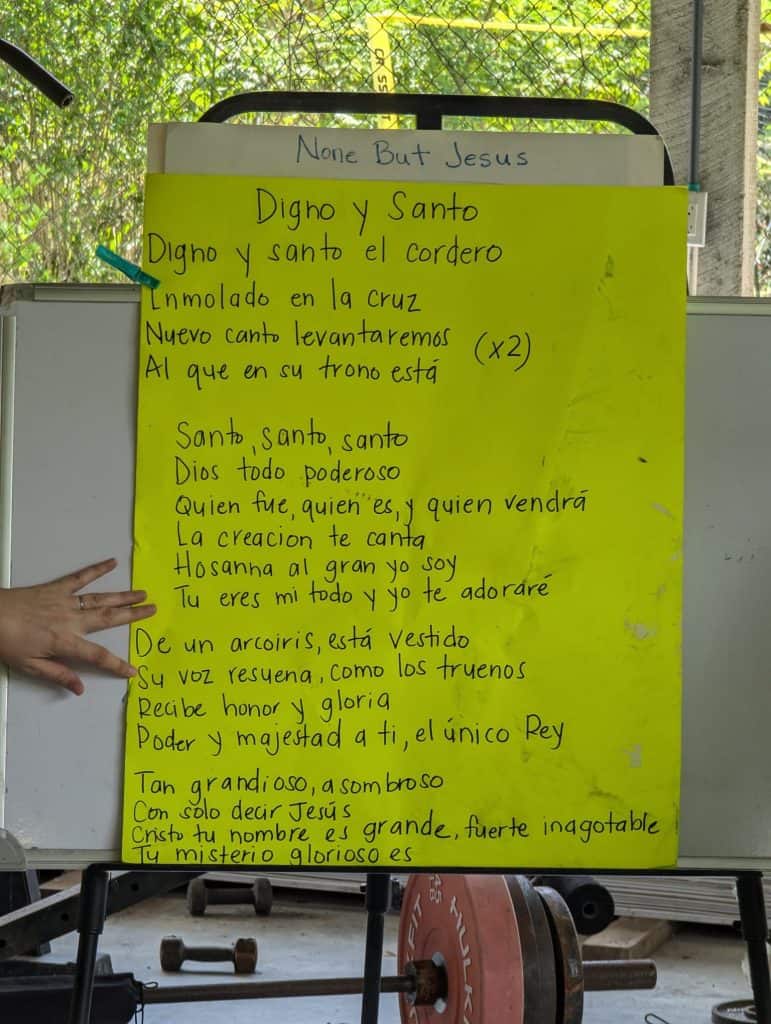 None But Jesus
Digno y Santo
Digno y santo el cordero
Inmolado en la cruz
Nuevo canto levantaremos (x2)
Al que en su trono está
Santo, santo, santo
Dios todo poderoso
Quien fue, quien es, y quien vendrá
La creacion te canta
Hosanna al gran yo soy
Tu eres mi todo y yo te adoraré
De un arcoiris, está vestido
Su voz resuena, como los truenos
Recibe honor y gloria
Poder y majestad a ti, el único Rey
Tan grandioso, asombroso
Con solo decir Jesús
Cristo tu nombre es grande, fuerte inagotable
Tu misterio glorioso es
45
HULK
FIT